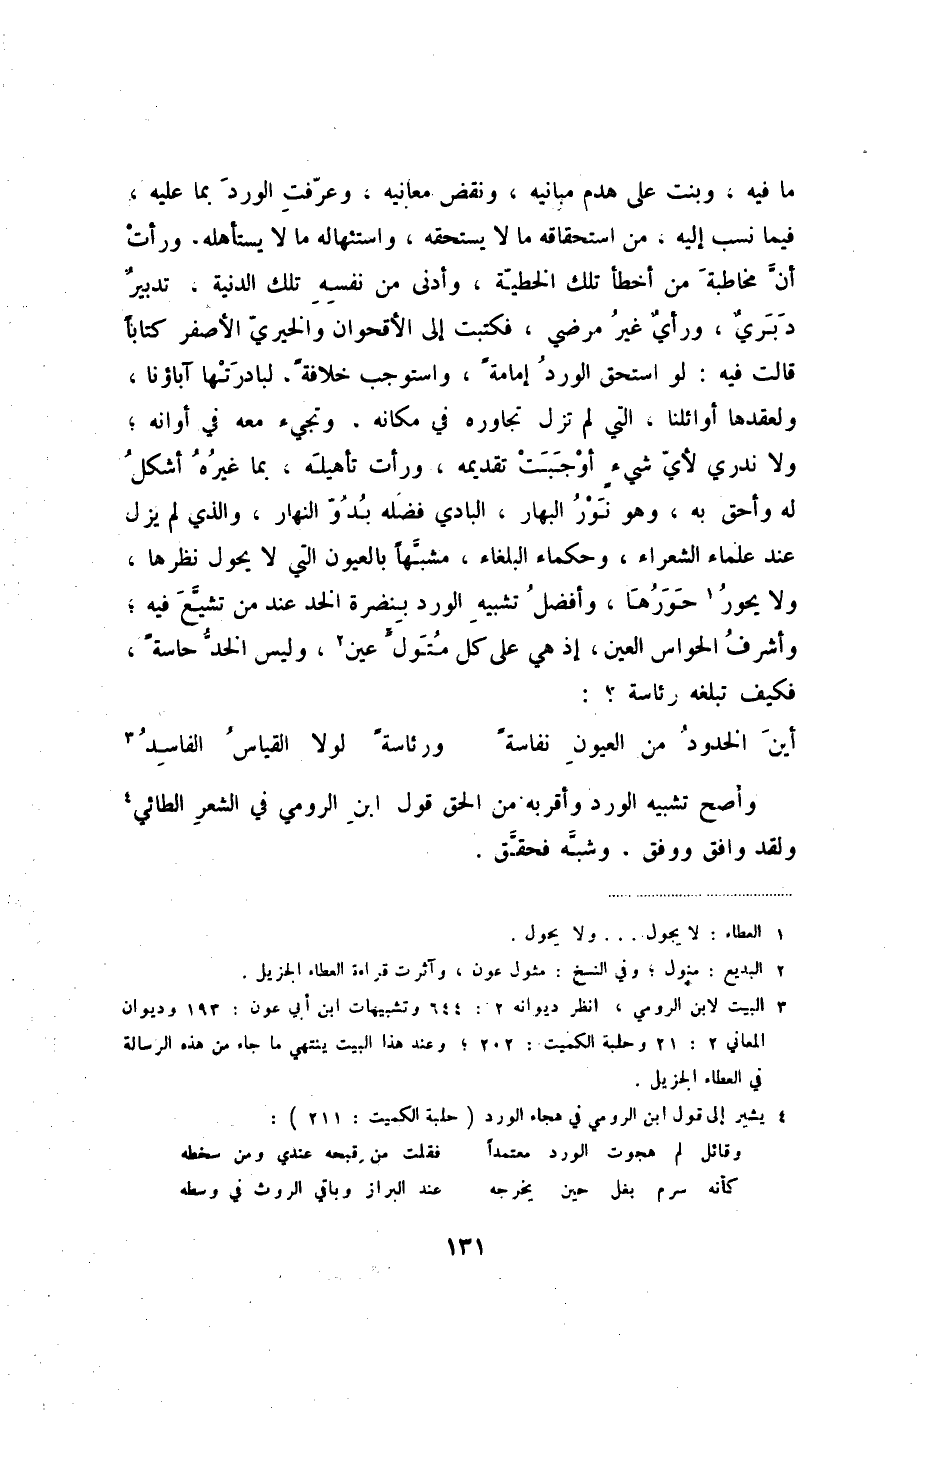 ما فيه ، وبنت على هدم مبانيه ، ونقض معانيه ، وعرّفتِ الوردَ بما عليه ،
فيما نسب إليه ، من استحقاقه ما لا يستحقه ، واستئهاله ما لا يستأهله. ورأتْ
أنَّ مخاطبةَ من أخطأ تلك الخطيّة ، وأدنى من نفسِهِ تلك الدنية ، تدبيرٌ
دَبَريٌ ، ورأيٌ غيرُ مرضي ، فكتبت إلى الأقحوان والخيريّ الأصفر كتاباً
قالت فيه : لو استحق الوردُ إمامةً ، واستوجب خلافةً. لبادرَتْها آباؤنا ،
ولعقدها أوائلنا ، التي لم تزل تجاوره في مكانه . وتجيء معه في أوانه ؛
ولا ندري لأيّ شيءٍ أوْجَبَتْ تقديمه ، ورأت تأهيلَه ، بما غيرُهُ أشكلُ
له وأحق به ، وهو نَوْرُ البهار ، البادي فضلُه بُدُوّ النهار ، والذي لم يزل
عند علماء الشعراء ، وحكماء البلغاء ، مشبَّهاً بالعيون التي لا يحول نظرها ،
ولا يحورُ١ حَوَرُهَا ، وأفضلُ تشبيهِ الورد بنضرة الخد عند من تشيَّعَ فيه ؛
وأشرفُ الحواس العين ، إذ هي على كل مُتَوَلٍّ عين٢ ، وليس الخدُّ حاسةً ،
فكيف تبلغه رئاسة ؟ :
أينَ الخدودُ من العيونِ نفاسةً ورئاسةً لولا القياسُ الفاسِدُ٣
وأصح تشبيه الورد وأقربه من الحق قول ابنِ الرومي في الشعرِ الطائي٤
ولقد وافق ووفق . وشبَّه فحقَّق .
١ العطاء : لا يجول ... ولا يحول .
٢ البديع : منول ؛ وفي النسخ : مثول عون ، وآثرت قراءة العطاء الجزيل .
٣ البيت لابن الرومي ، انظر ديوانه ٢ : ٦٤٤ وتشبيهات ابن أبي عون : ١٩٣ وديوان
المعاني ٢ : ٢١ وحلبة الكميت : ٢٠٢ ؛ وعند هذا البيت ينتهي ما جاء من هذه الرسالة
في العطاء الجزيل .
٤ يشير إلى قول ابن الرومي في هجاء الورد ( حلبة الكميت : ٢١١ ) :
وقائل لم هجوت الورد معتمداً فقلت من قبحه عندي ومن سخطه
كأنه سرم بغل حين يخرجه عند البراز وباقي الروث في وسطه
١٣١